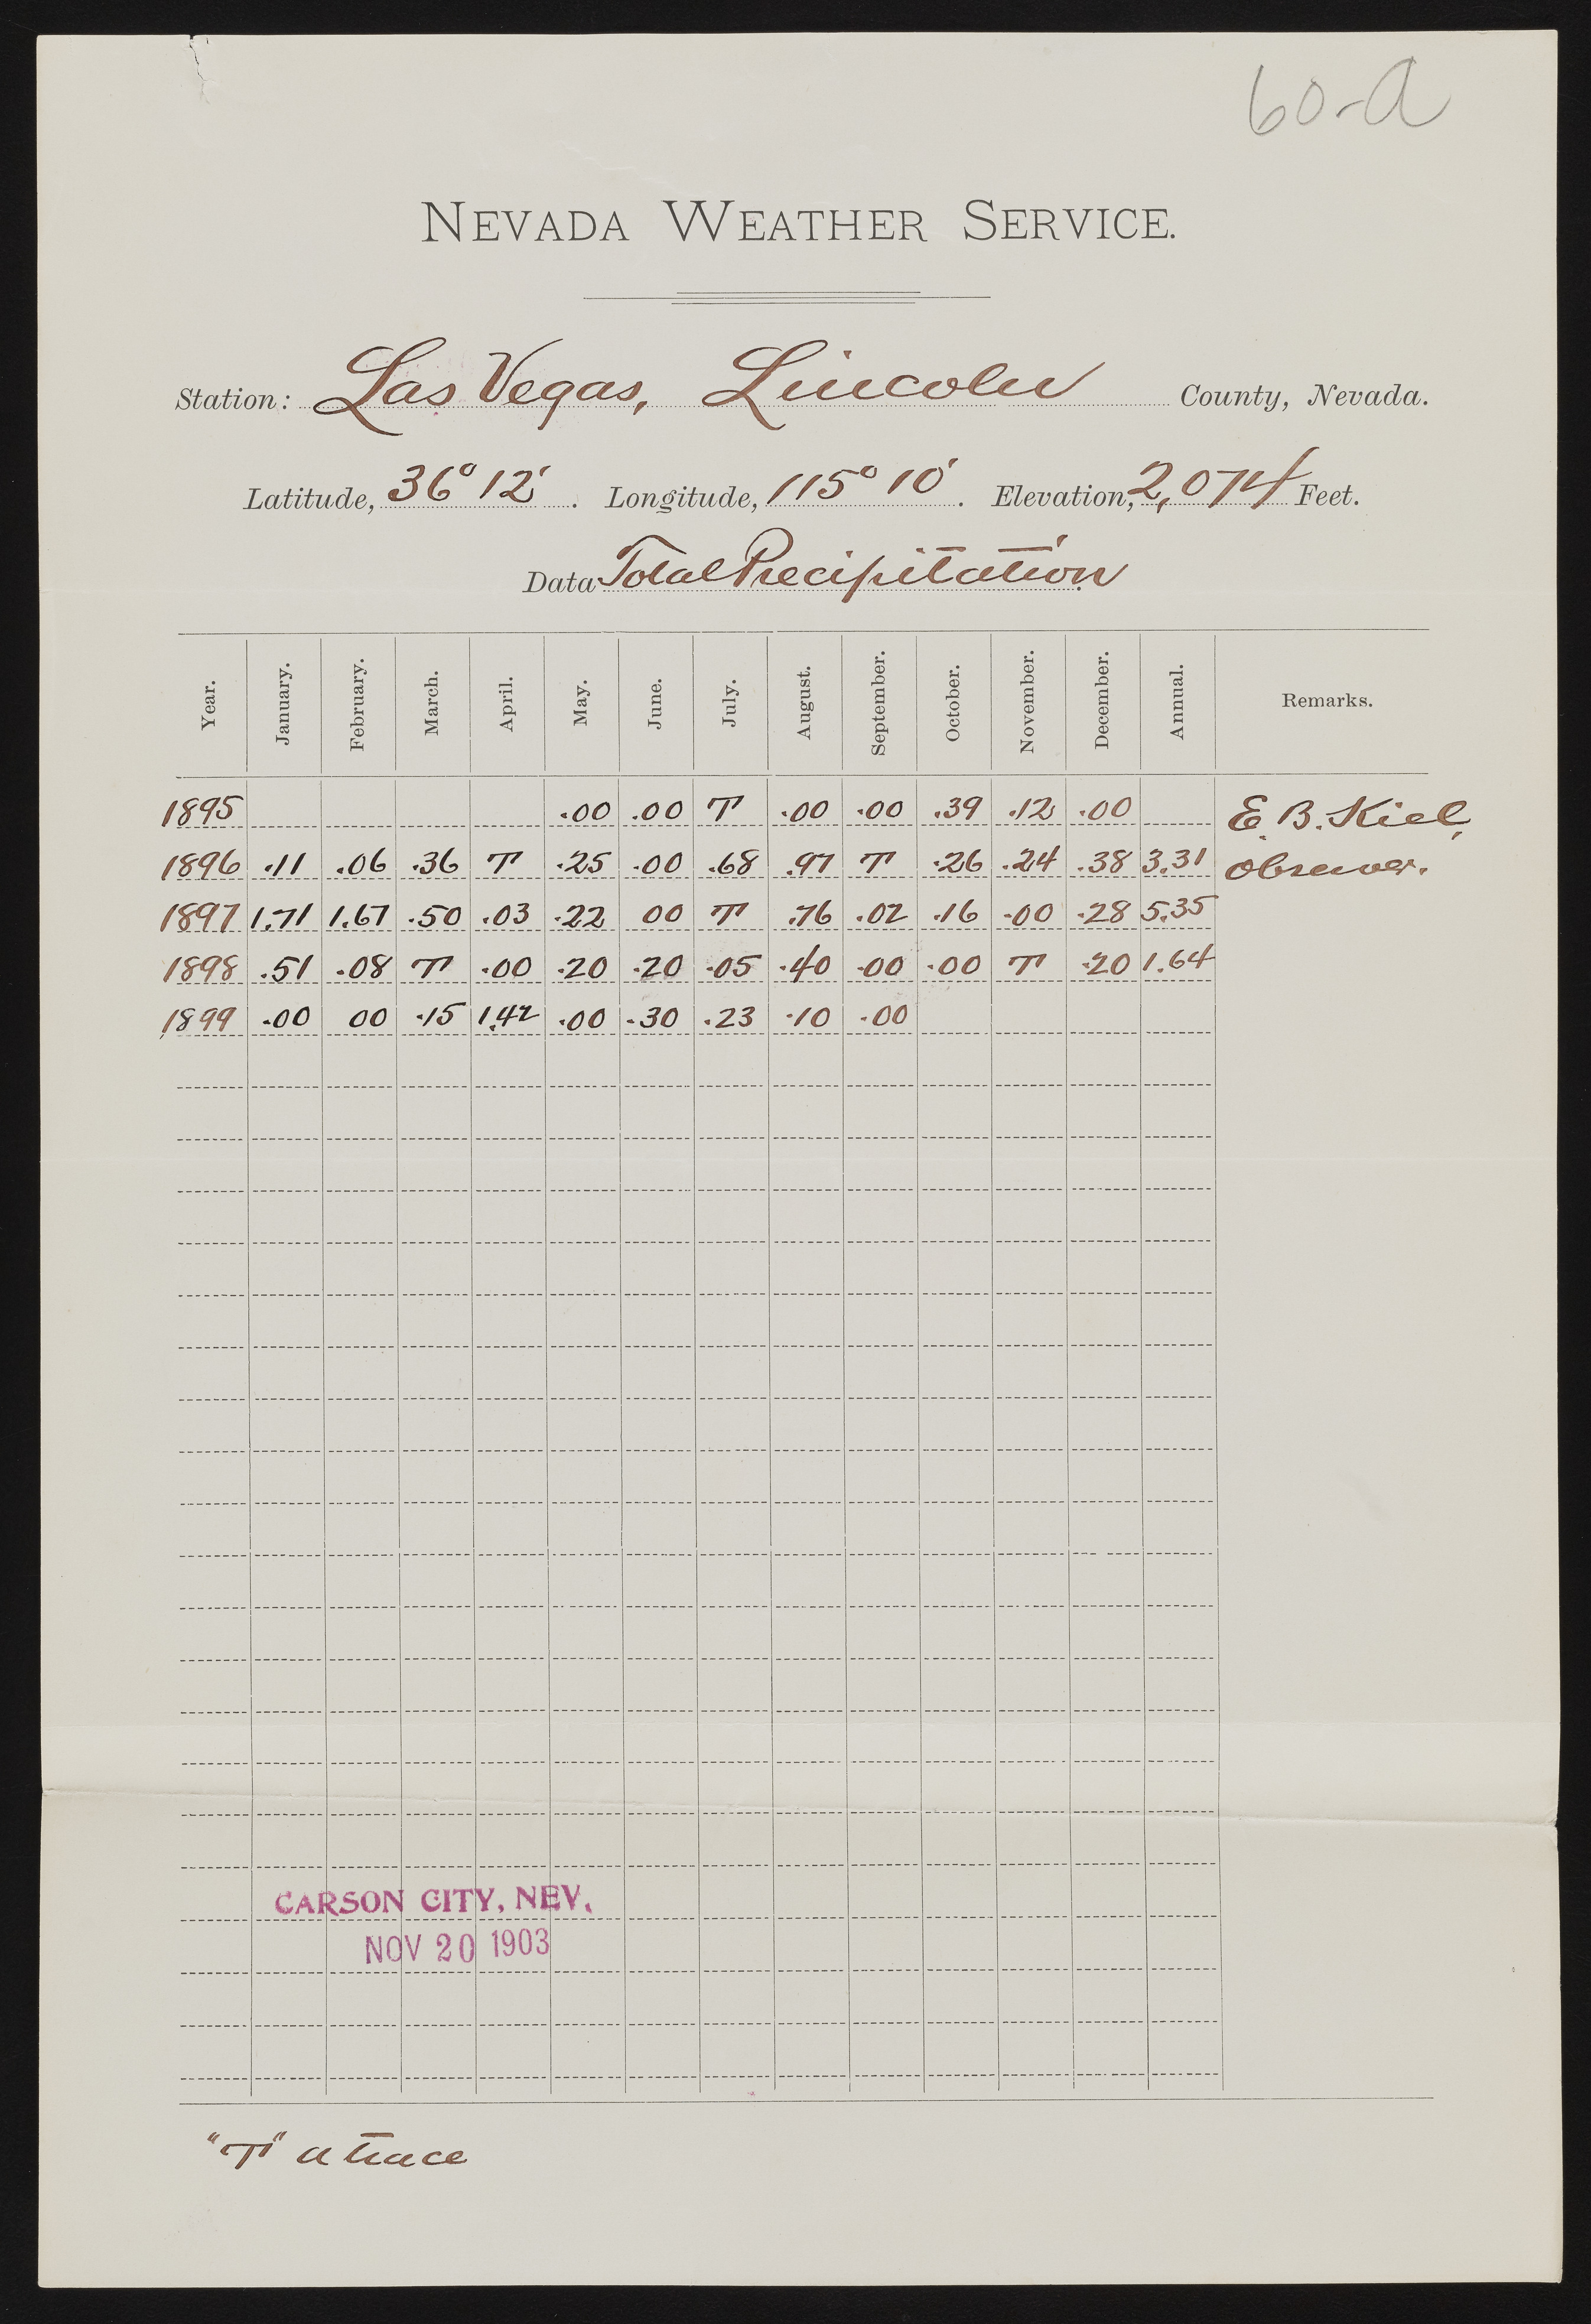 60-a
NEVADA WEATHER SERVICE.
Station: Las Vegas, Lincoln County, Nevada.
Latitude, 36° 12'. Longitude, 115° 10'. Elevation, 2,074 Feet.
Data Total Precipitation
Year. January. February. March. April. May. June. July. August. September. October. November. December. Annual. Remarks.
1895 .00 .00 T .00 .00 .39 .12 .00 E. B. Kiel,
1896 .11 .06 .36 T .25 .00 .68 .97 T .26 .24 .38 3.31 Observer.
1897 1.71 1.67 .50 .03 .22 00 T .76 .02 .16 .00 .28 5.35
1898 .51 .08 T .00 .20 .20 .05 .40 .00 .00 T .20 1.64
1899 .00 00 .15 1.42 .00 .30 .23 .10 .00
CARSON CITY, NEV.
NOV 20 1903
"T" a trace